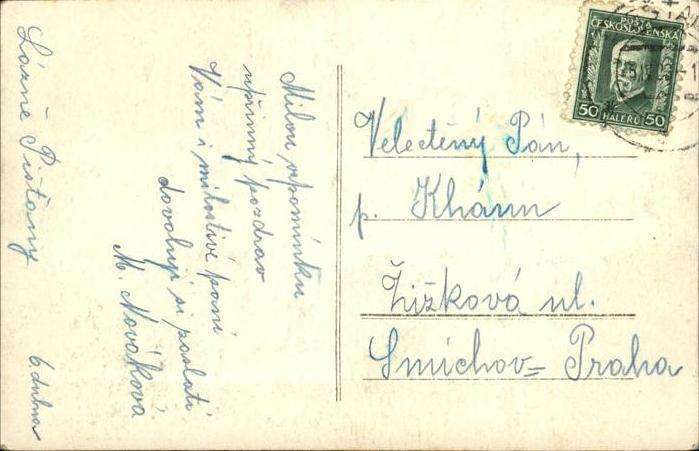 Lázně Pištany
6. dubna
Milou vzpomínku
upřímný pozdrav
Vám i milostivé paní
dovoluji si poslati
M. Nováková
POŠTA
ČESKOSLOVENSKÁ
50 HALÉŘŮ 50
Velectěný Pán,
p. Khánn
Žižková ul.
Smíchov = Praha